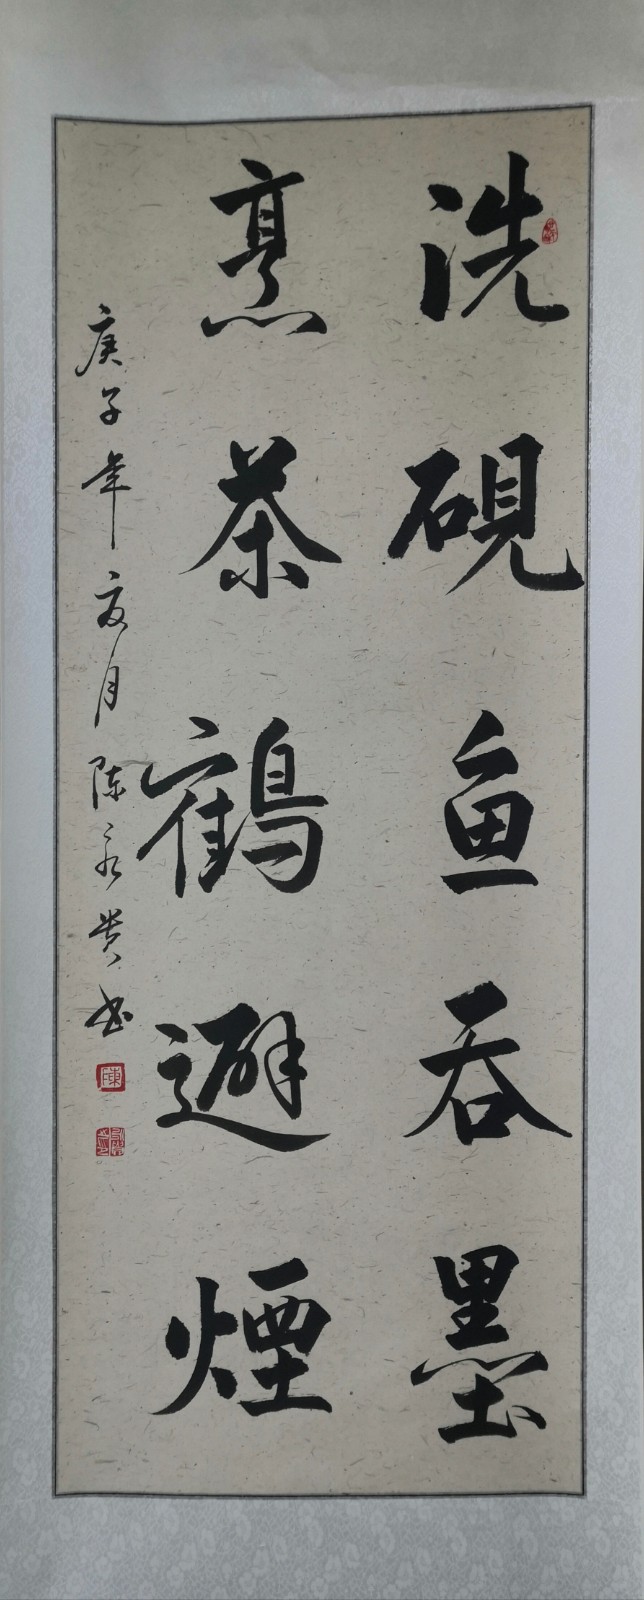 洗硯鱼吞墨
烹茶鶴避煙
庚子年夏月陈永贵书